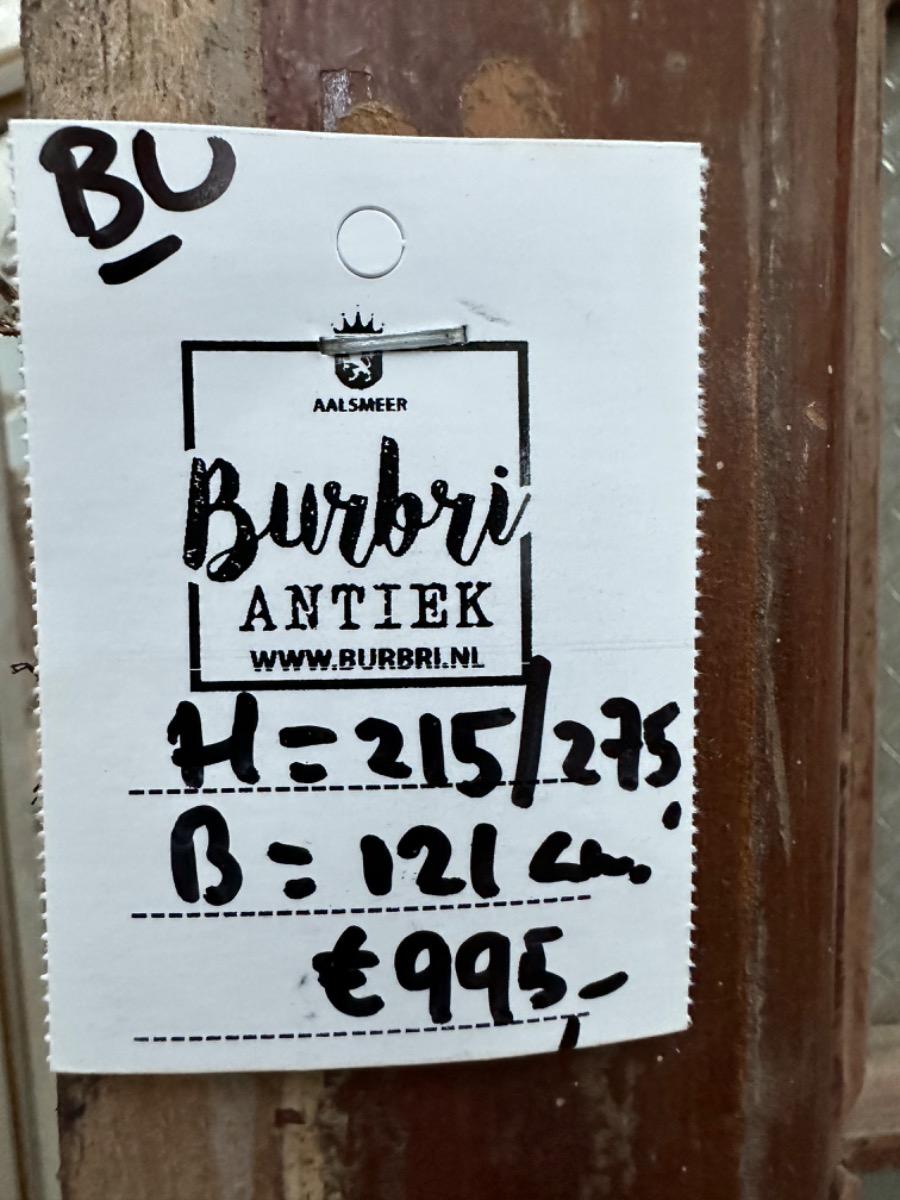 BU
AALSMEER
Burbri
ANTIEK
WWW.BURBRI.NL
H = 215/275
B = 121 cm.
€995,-